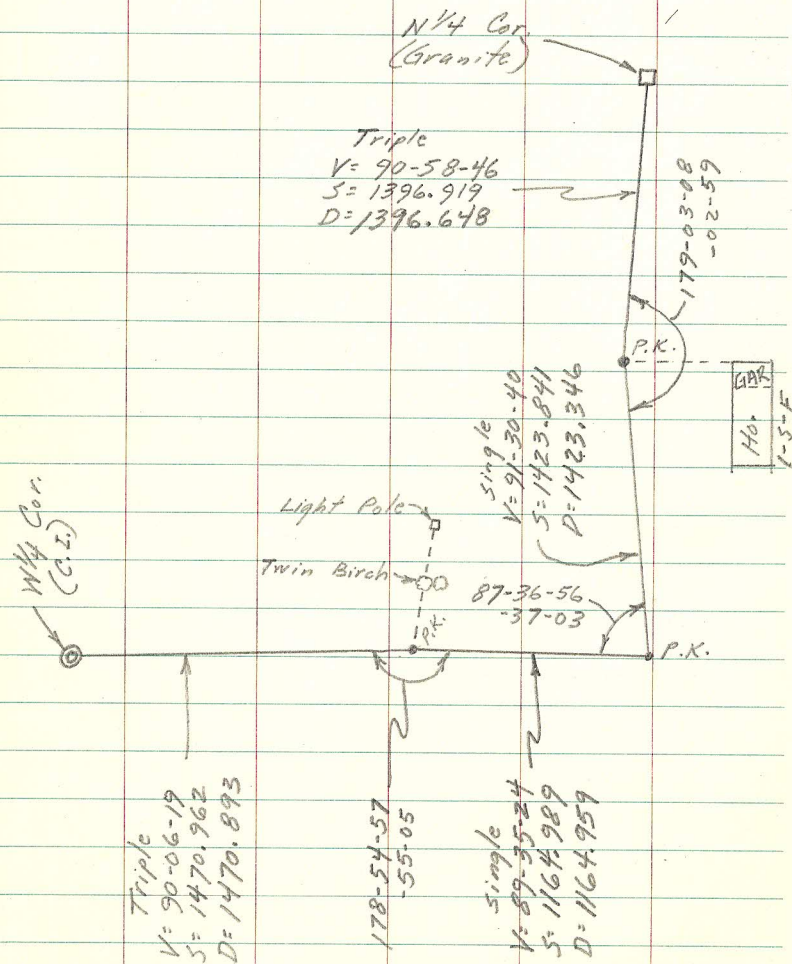 N 1/4 Cor.
(Granite)
Triple
V= 90-58-46
S= 1396.919
D= 1396.648
179-03-08
-02-59
P.K.
GAR
Ho.
1-S-F
Single
V= 91-30-40
S= 1423.841
D= 1423.346
Light Pole
Twin Birch
87-36-56
-37-03
W 1/4 Cor.
(C.I.)
P.K.
P.K.
Triple
V= 90-06-19
S= 1470.962
D= 1470.893
178-54-57
-55-05
Single
V= 89-35-24
S= 1164.989
D= 1164.959